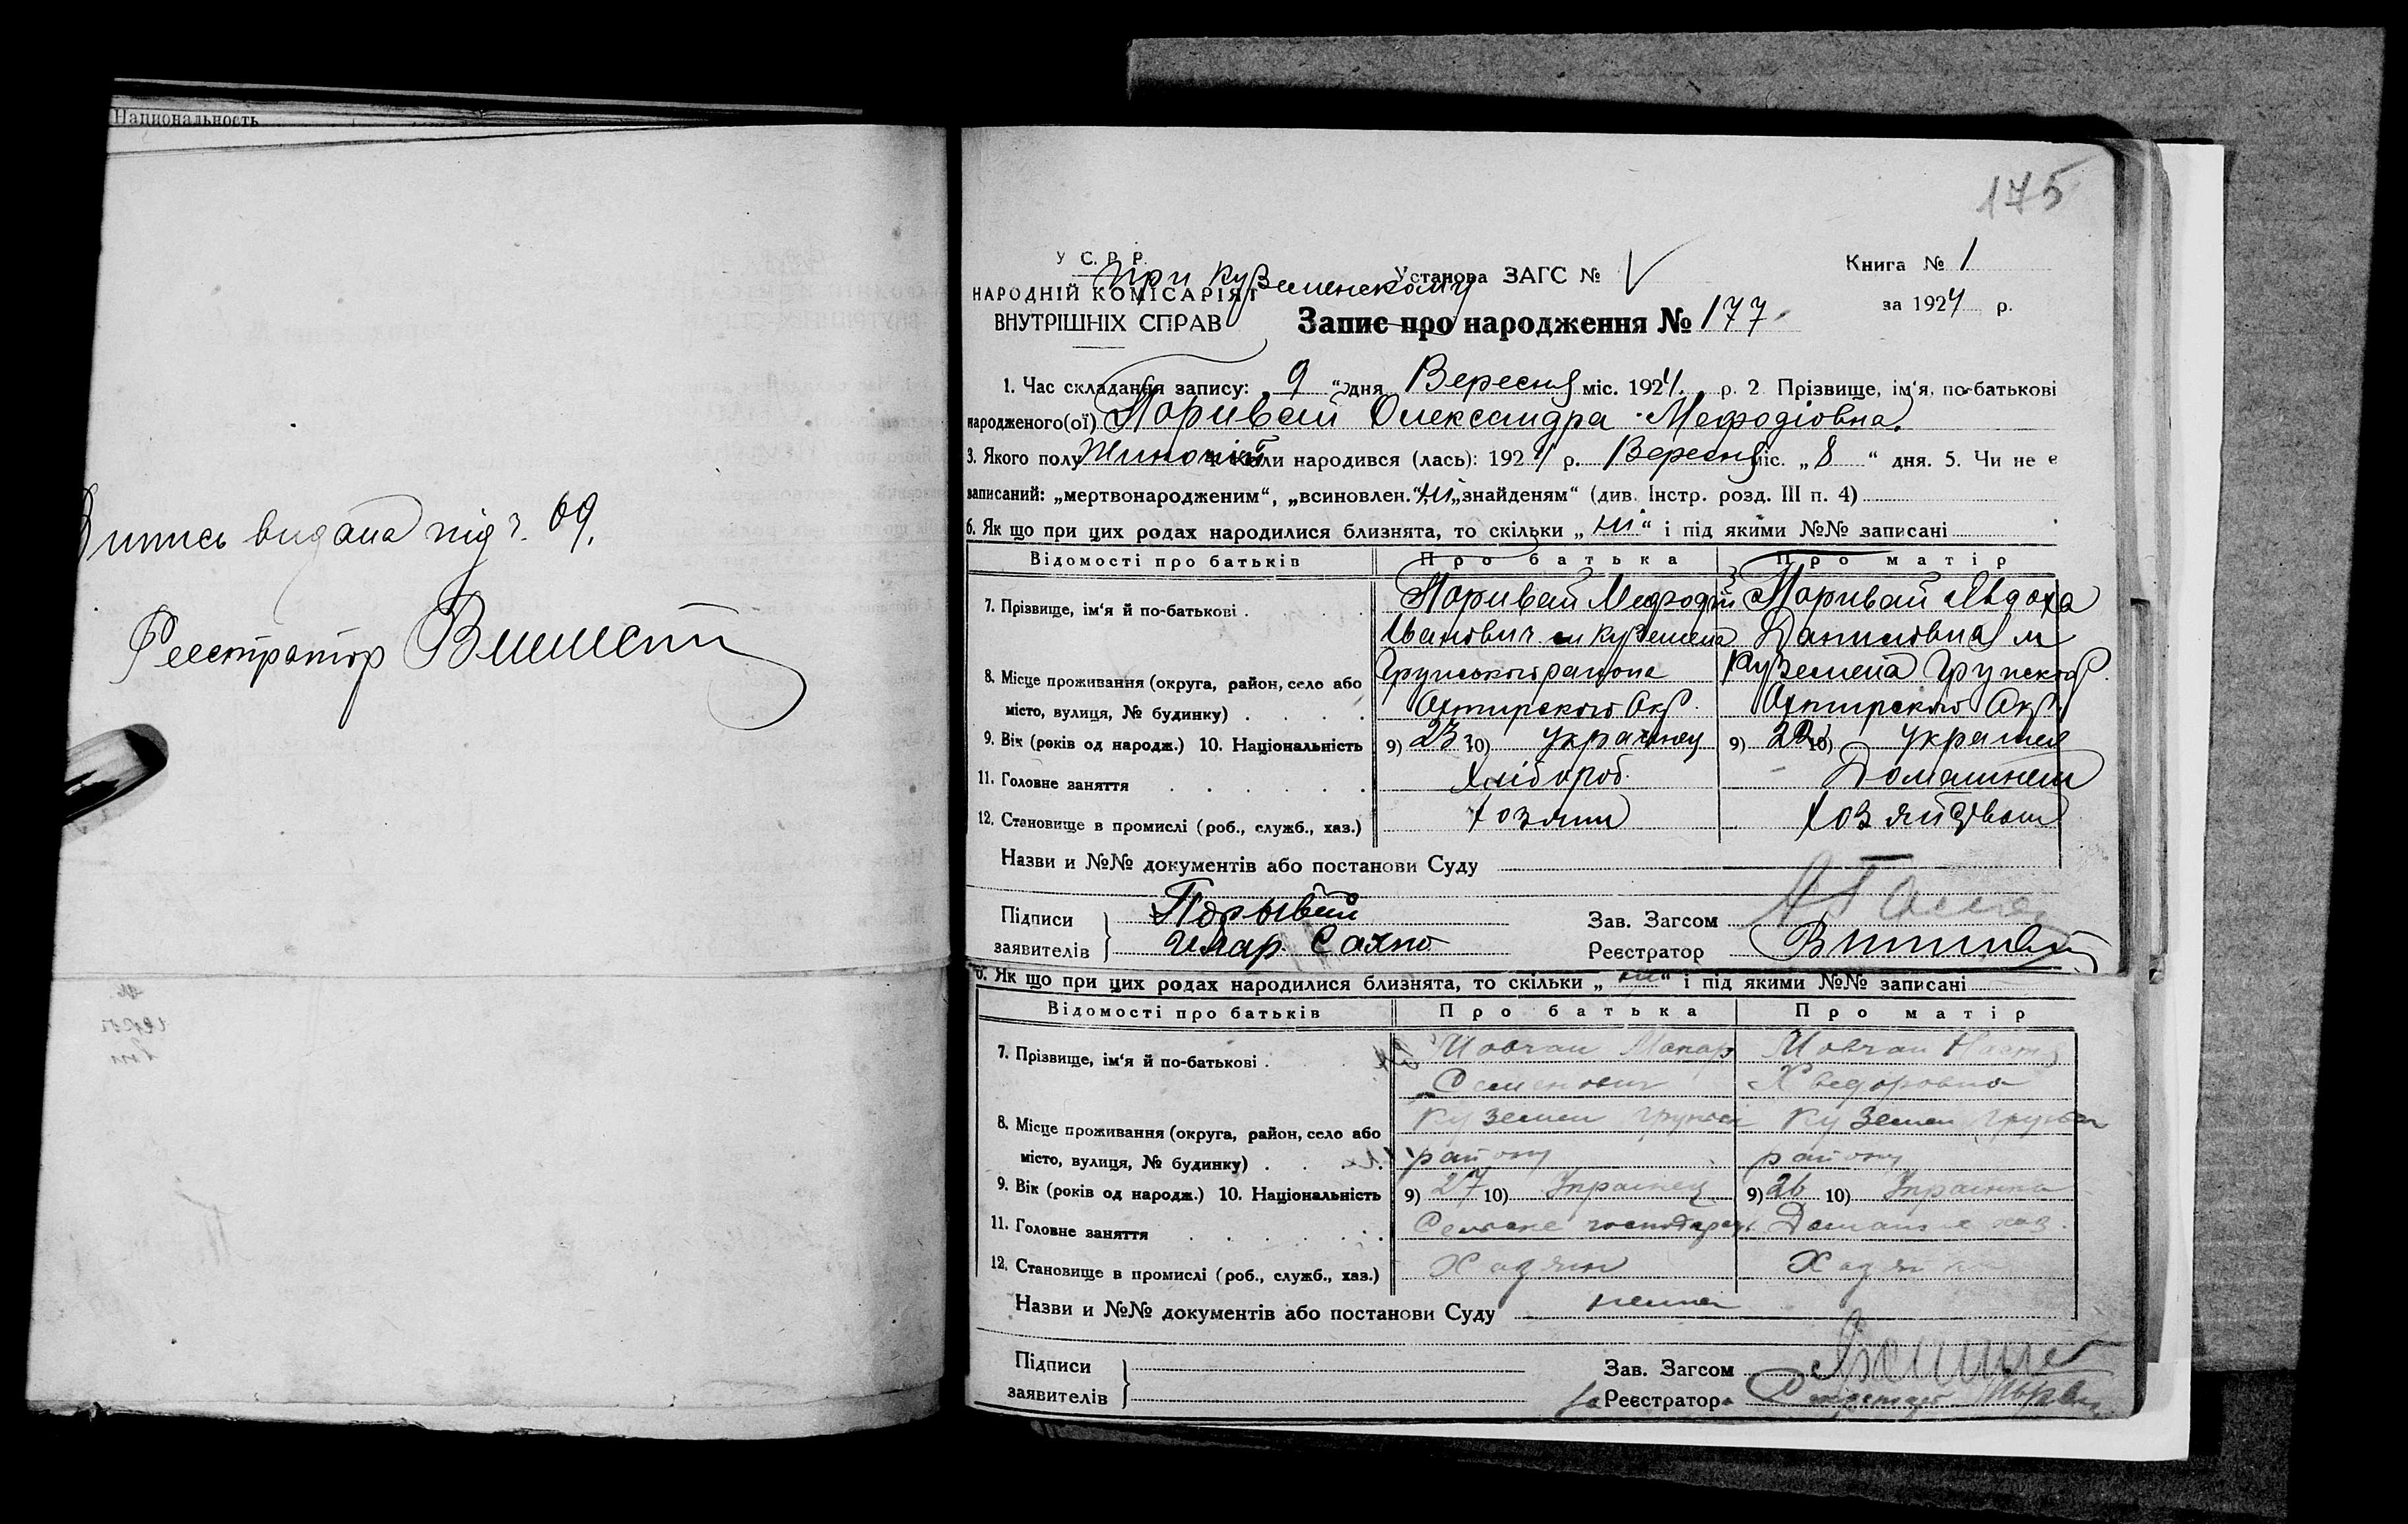 Национальность
Випись видана під ч. 69.
Реєстратор
175
У. С. Р. Р.
НАРОДНІЙ КОМІСАРІЯТ
ВНУТРІШНІХ СПРАВ
при Куземенскому
Установа ЗАГС № V
Книга № 1
за 1924 р.
Запис про народження № 177
1. Час складання запису: „ 9 “ дня Вересня міс. 1924 р. 2 Прізвище, ім‘я, по-батькові
народженого(ої) Поривай Олександра Мефодіовна.
3. Якого полу Жиночій 4. Коли народився (лась): 1924 р. Вересня міс. „ 8 “ дня. 5. Чи не є
записаний: „мертвонародженим“, „всиновлен.“, ні „знайденям“ (див. Інстр. розд. III п. 4)
6. Як що при цих родах народилися близнята, то скільки „ ні “ і під якими №№ записані
Відомості про батьків Про батька Про матір
7. Прізвище, ім‘я й по-батькові . Поривай Мефодій Поривай Явдоха
Іванович м Куземена Даниловна м
8. Місце проживання (округа, район, село або Грунського району Куземена Грунског
місто, вулиця, № будинку) . Охтирского Окр. Охтирского Окр.
9. Вік (років од народж.) 10. Національність 9) 23 10) Украінец 9) 22 10) Украінка
11. Головне заняття Хлібороб. Домашнєм
12. Становище в промислі (роб., служб., хаз.) хозяин хозяйством
Назви и №№ документів або постанови Суду
Підписи Порывай Зав. Загсом
заявителів Реєстратор
6. Як що при цих родах народилися близнята, то скільки „ ні “ і під якими №№ записані
Відомості про батьків Про батька Про матір
7. Прізвище, ім‘я й по-батькові . Мовчан Макар Мовчан
Семенович Хведоровна
8. Місце проживання (округа, район, село або Куземен Грунськ Куземен Грунськ
місто, вулиця, № будинку) . району району
9. Вік (років од народж.) 10. Національність 9) 27 10) Украінец 9) 26 10) Украінка
11. Головне заняття Сельське господар. Домашнє хаз.
12. Становище в промислі (роб., служб., хаз.) Хазяин Хазяйка
Назви и №№ документів або постанови Суду нема
Підписи Зав. Загсом
заявителів За Реєстратора Секретарь